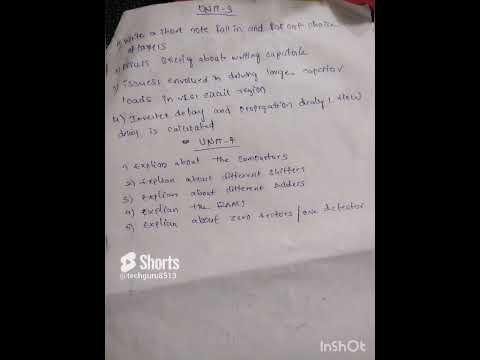 UNIT-3
1) Write a short note fall in and fan out choice
of layers
2) Discuss Briefly about writing capacitole
3) issues envolved in driving large capacitor
loads in VLSI circuit region
4) Inverter delay and propagation delay
delay is calculated
UNIT-4
1) Explian about the computors
2) Explian about different shifters
3) Explian about different adders
4) Explian the RAMs
5) Explian about zero sectors/one detector
Shorts
@techguru8513
InShOt